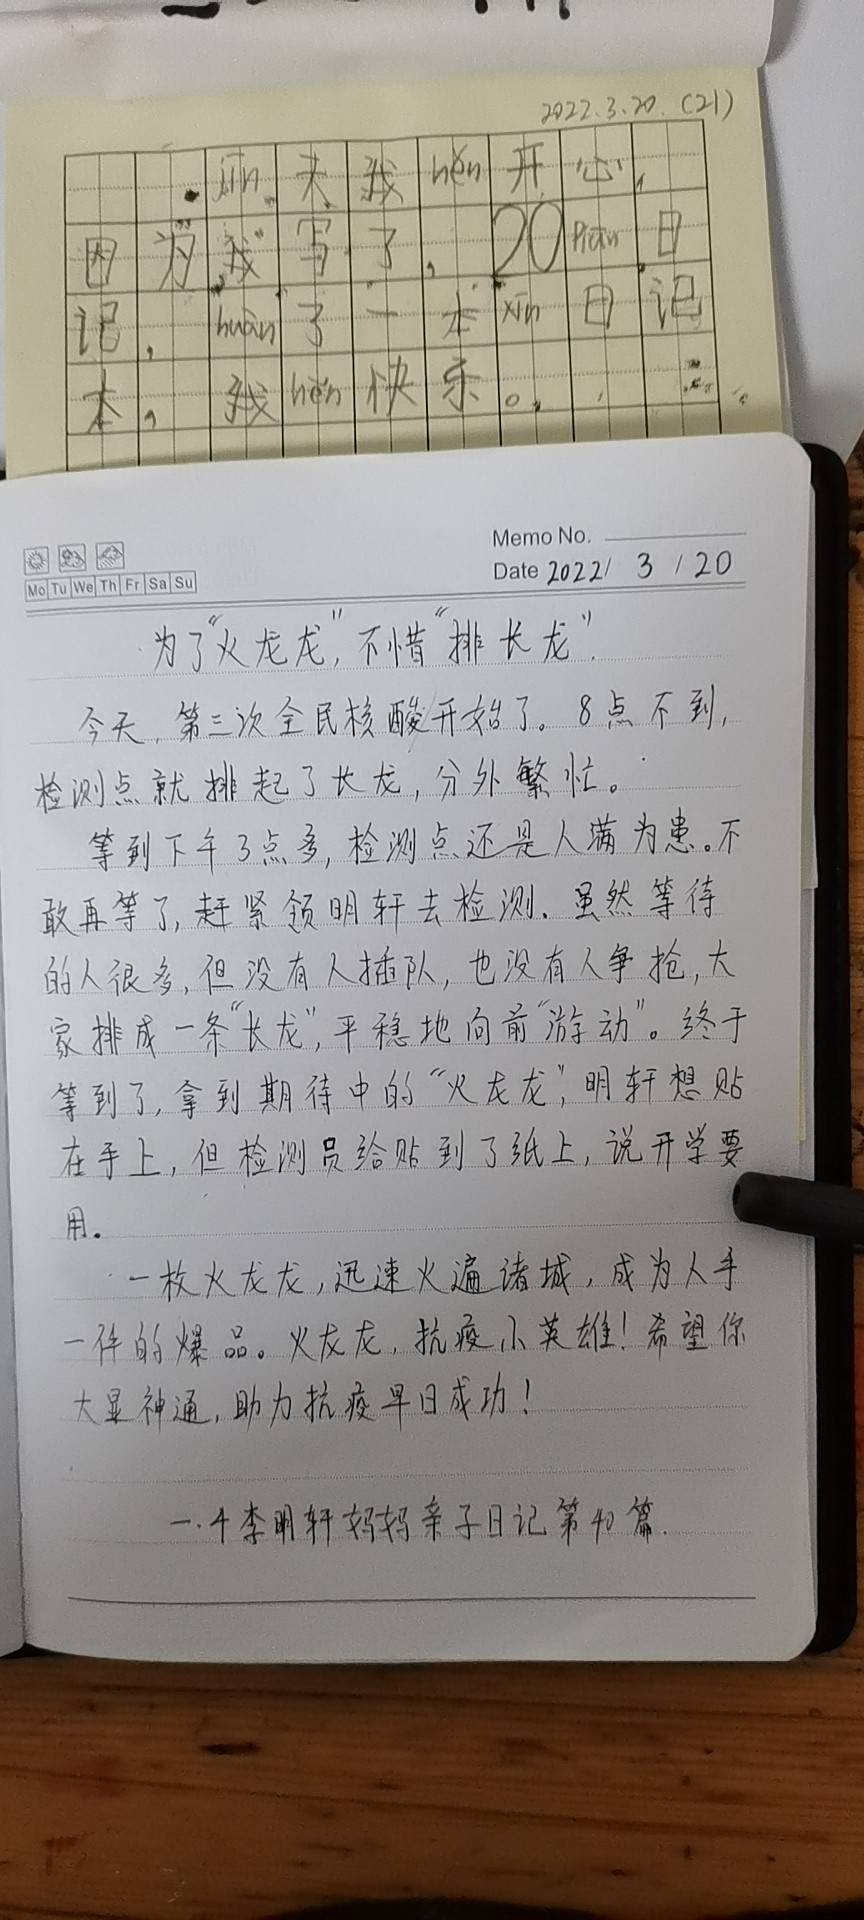 2022.3.20.（21）
jīn天我hěn开心，
因为我写了，20piān日
记，huàn了一本xīn日记
本，我hěn快乐。
Memo No.
Mo Tu We Th Fr Sa Su
Date 2022/ 3 / 20
为了“火龙龙”，不惜“排长龙”.
今天，第三次全民核酸开始了。8点不到，
检测点就排起了长龙，分外繁忙。
等到下午3点多，检测点还是人满为患。不
敢再等了，赶紧领明轩去检测.虽然等待
的人很多，但没有人插队，也没有人争抢，大
家排成一条“长龙”，平稳地向前“游动”。终于
等到了，拿到期待中的“火龙龙”，明轩想贴
在手上，但检测员给贴到了纸上，说开学要
用。
一枚火龙龙，迅速火遍诸城，成为人手
一件的爆品。火龙龙，抗疫小英雄！希望你
大显神通，助力抗疫早日成功！
一.4李明轩妈妈亲子日记第40篇.